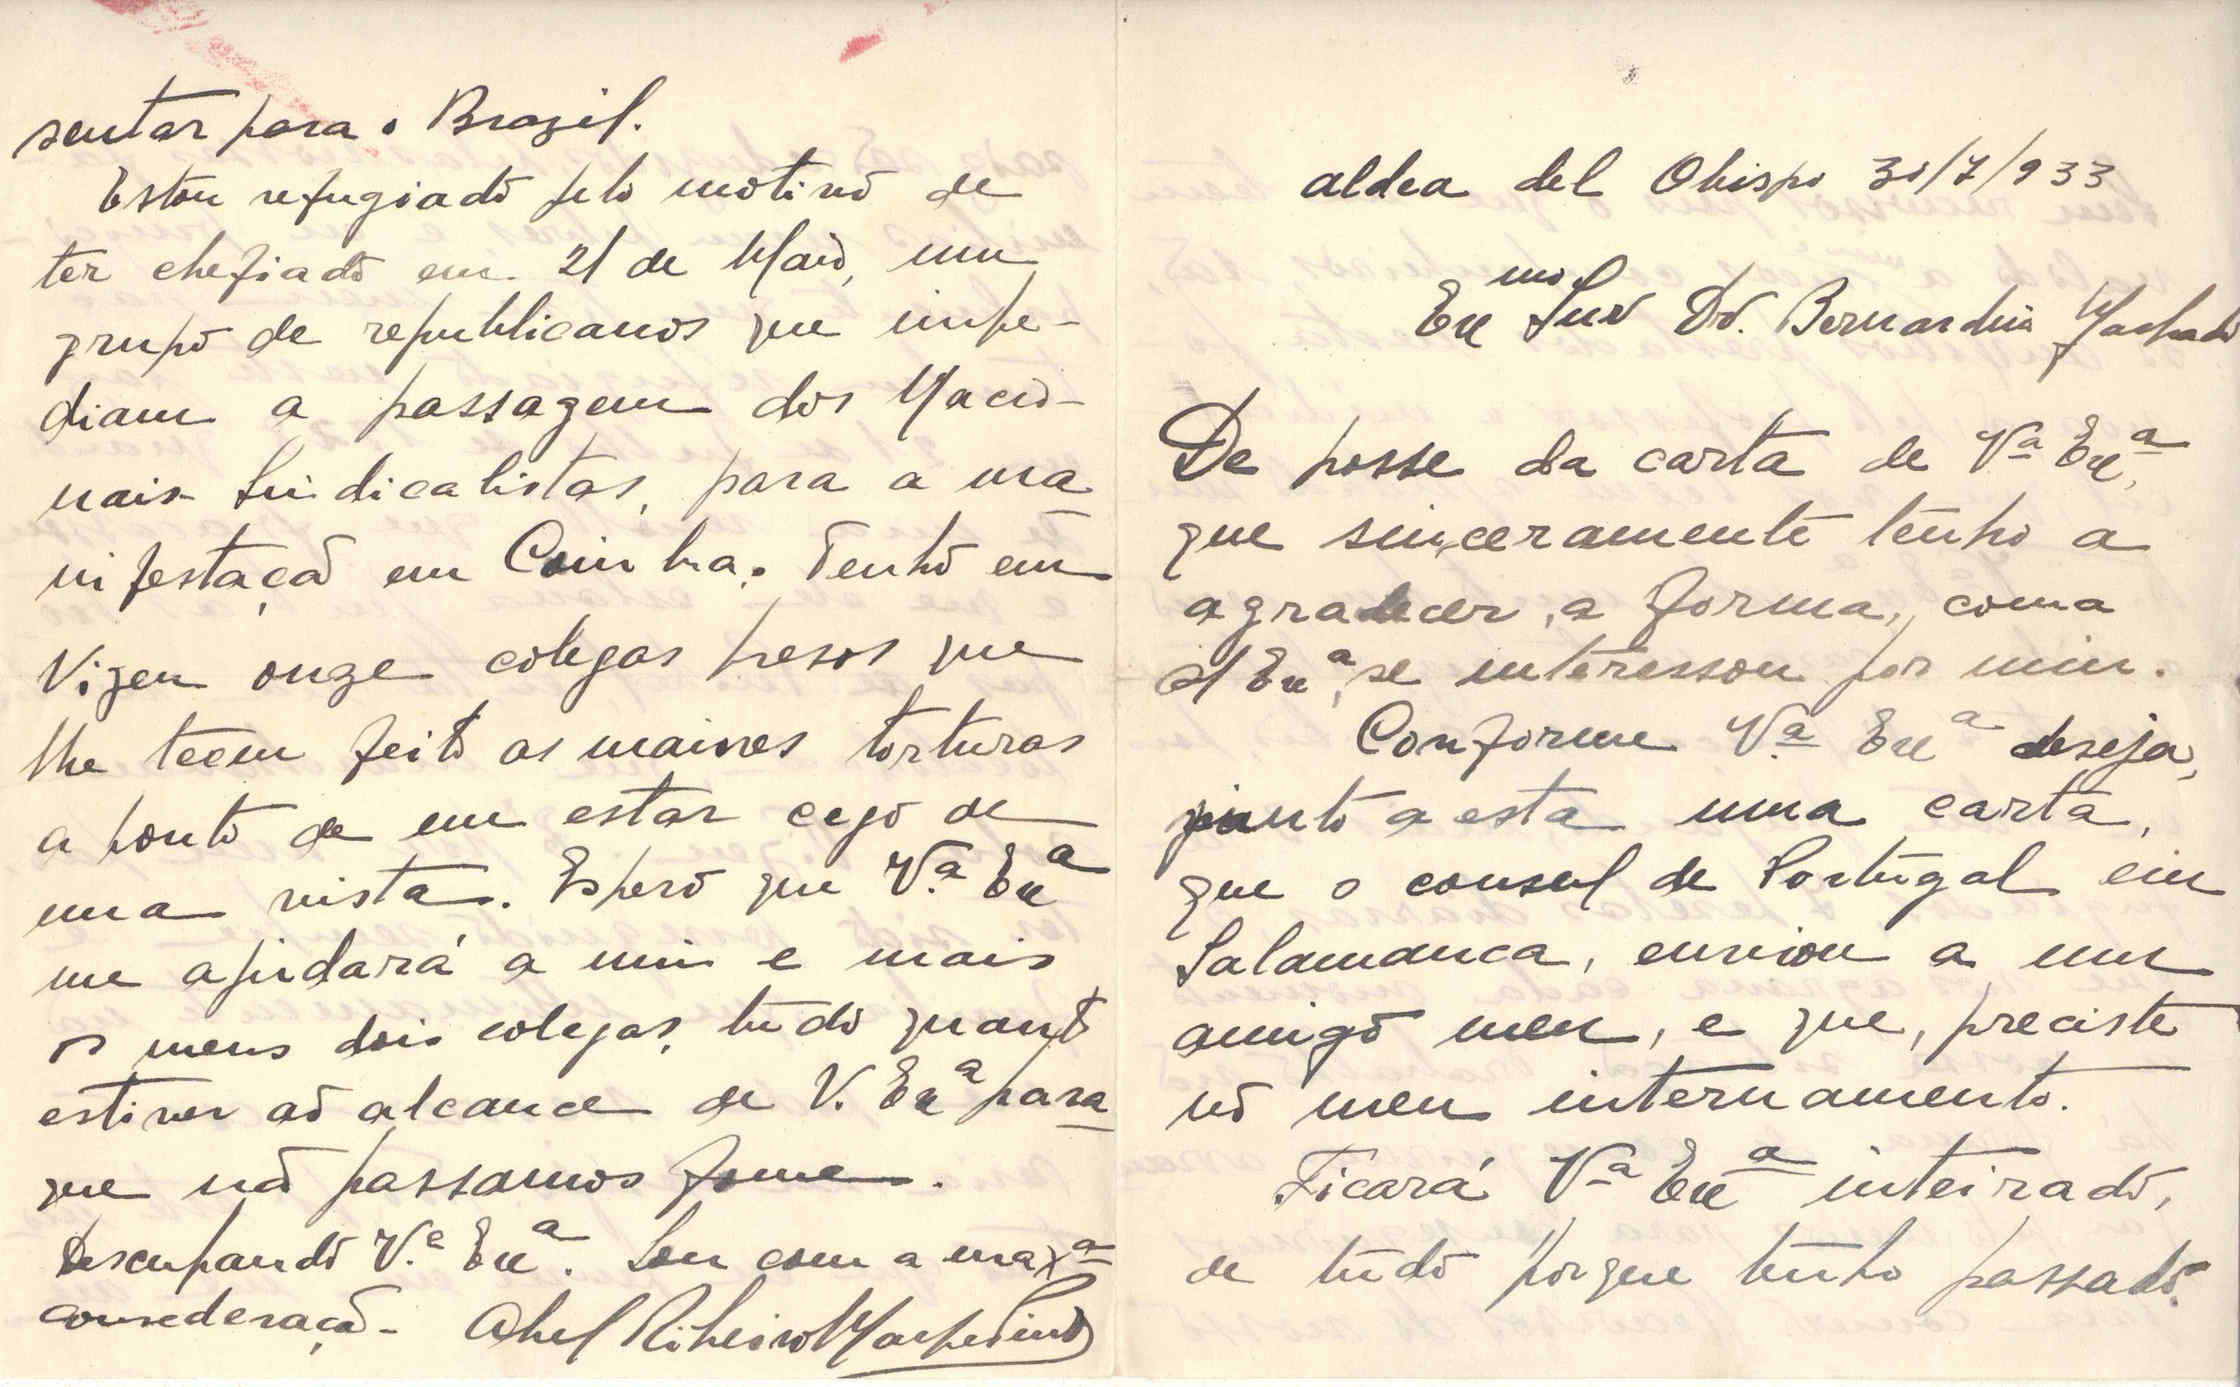 aldea del Obispo 30/7/933
Exmo Snr Dr. Bernardino Machado
De posse da carta de Va Exa,
que sinceramente tenho a
agradecer, a forma, coma
Exa, se interessou por mim.
Conforme V.a Exa deseja,
junto a esta uma carta,
que o consul de Portugal em
Salamanca, enviou a um
amigo meu, e que, preciste
no meu internamento.
Ficará Va Exa inteirado,
de tudo porque tenho passado.
sentar para o Brazil.
Estou refugiado pelo motivo de
ter chefiado em 21 de Maio, um
grupo de republicanos que impe-
diam a passagem dos Nacio-
nais Sindicalistas, para a ma
nifestação em Coimbra. Tenho em
Vizeu onze colegas presos que
lhe teem feito as maiores torturas
a ponto de um estar cego de
uma vista. Espero que V.a Exa
me ajudará a mim e mais
os meus dois colegas, tudo quanto
estiver ao alcance de V. Exa para
que não passamos fome.
Desculpando V.a Exa. Sou com a maxa
consederação - Abel Ribeiro